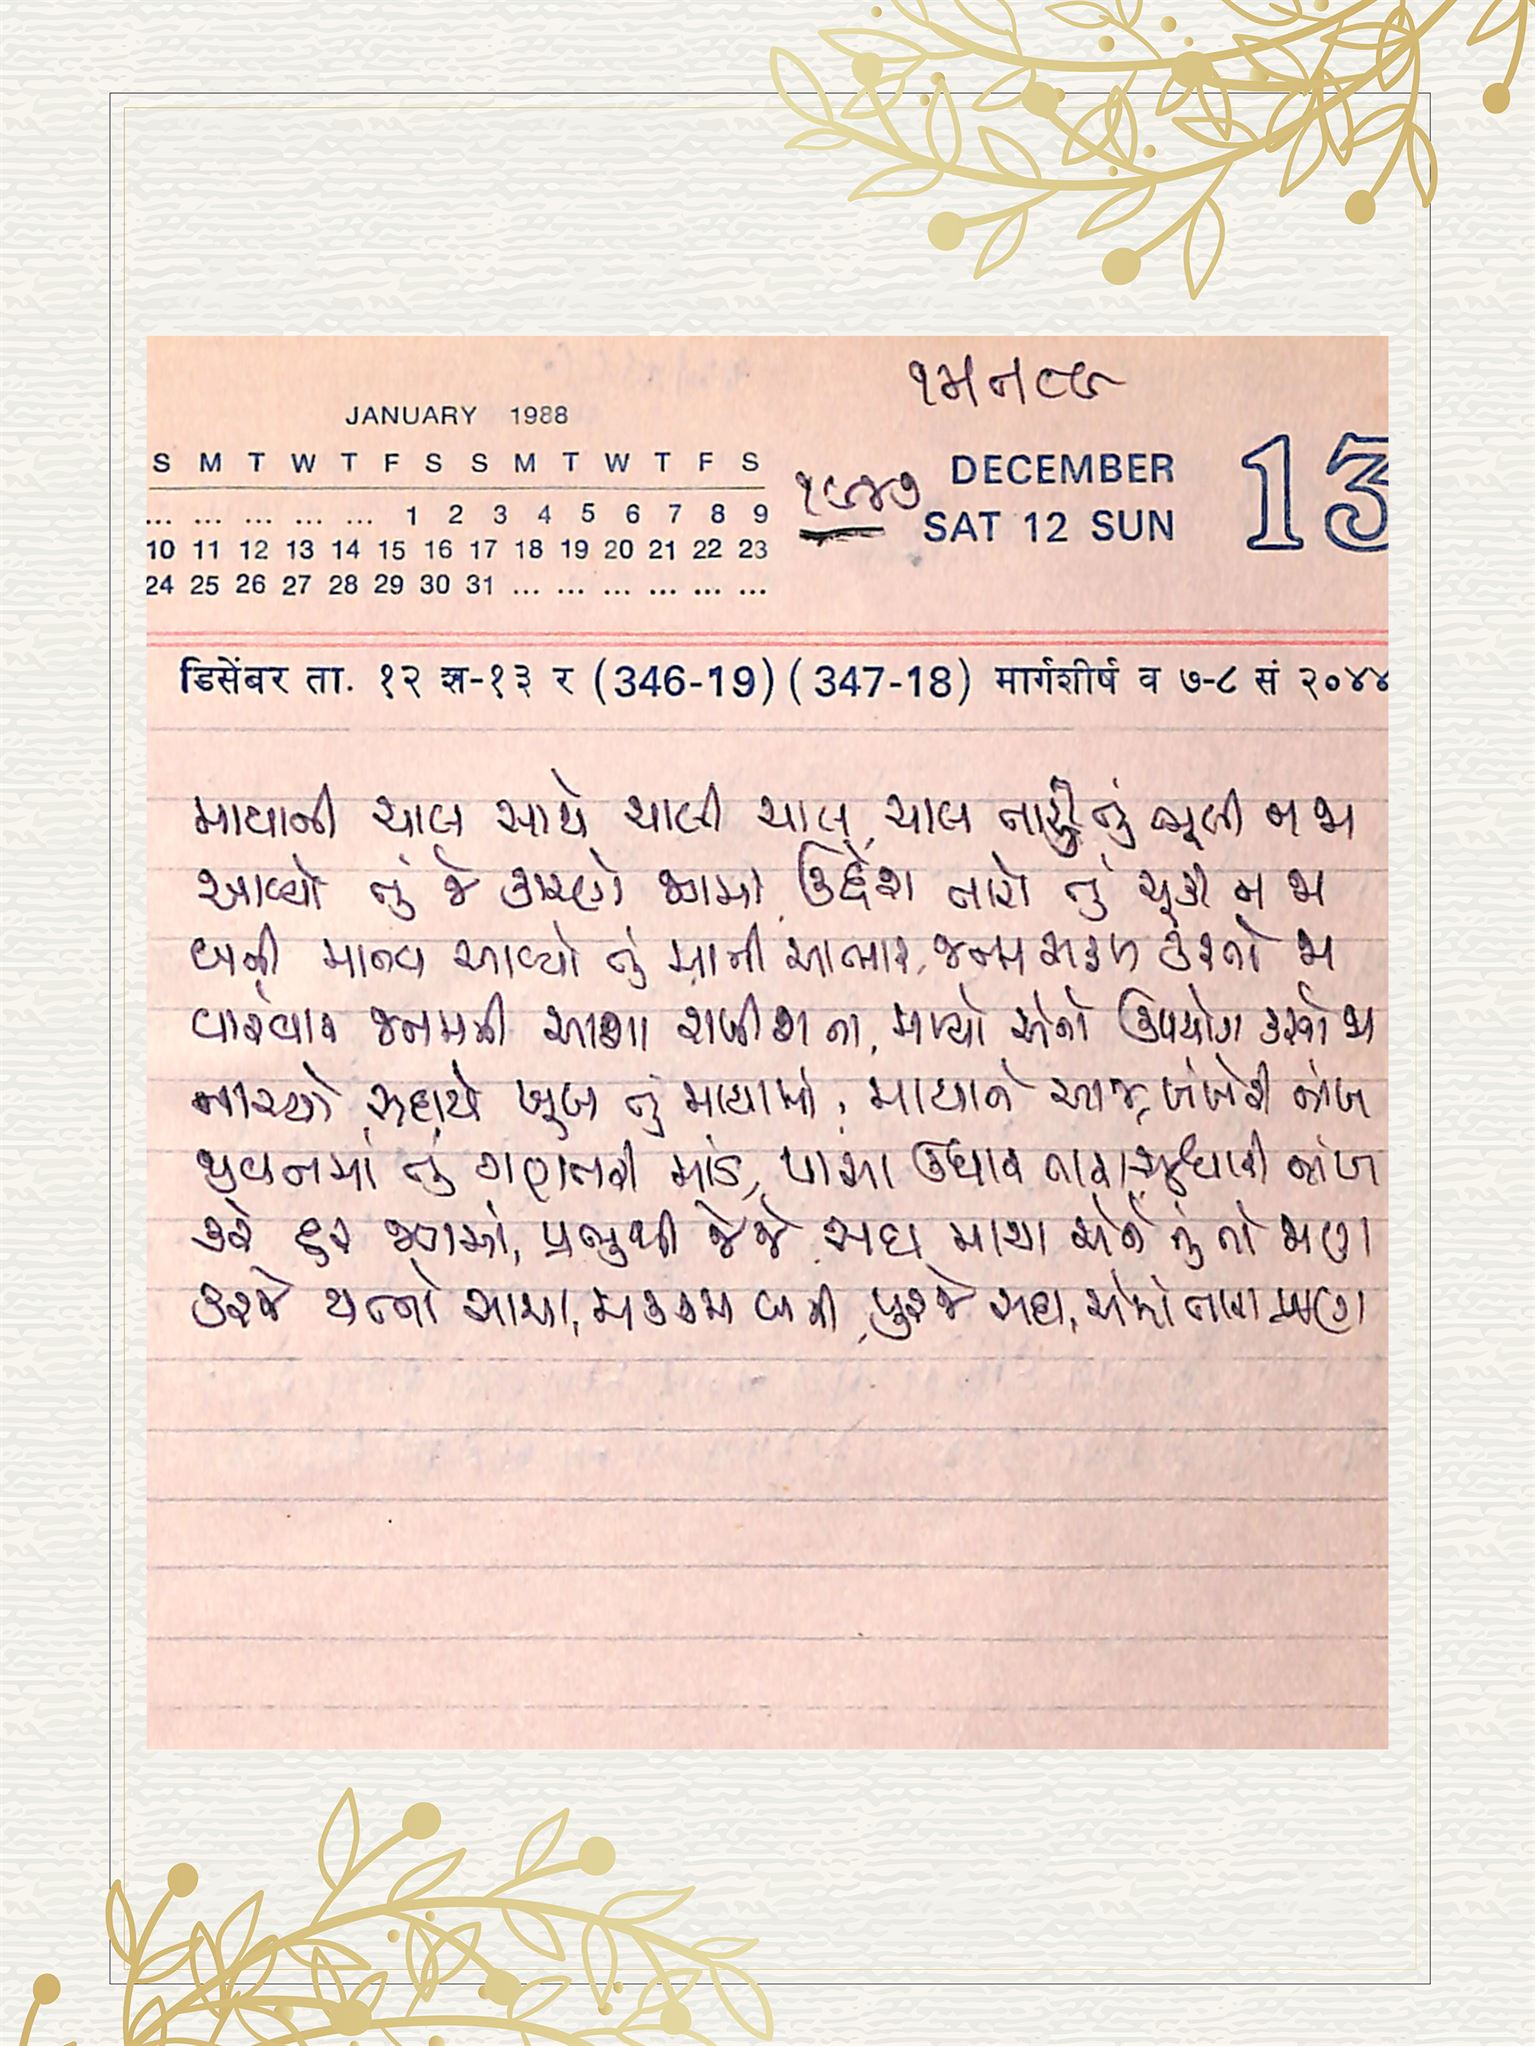 ૧મ ન ૮૯
JANUARY 1988
S M T W T F S S M T W T F S
... ... ... ... ... 1 2 3 4 5 6 7 8 9
10 11 12 13 14 15 16 17 18 19 20 21 22 23
24 25 26 27 28 29 30 31 ... ... ... ... ... ...
૧૮૪૭
DECEMBER 13
SAT 12 SUN
डिसेंबर ता. १२ श-१३ र (346-19) (347-18) मार्गशीर्ष व ७-८ सं २०४४
માયાની ચાલ સાથે ચાલી ચાલ, ચાલ તારી તું ભૂલી ન જા
આવ્યો તું જે કારણે જગમાં ઉદ્દેશ તારો તું ચૂકી ન જા
બની માનવ આવ્યો તું માની આભાર, જન્મ સફળ કરતો જા
વારંવાર જનમની આશા રાખીશ ના, મળ્યો એનો ઉપયોગ કરતો જા
નાચ્યો સદાયે ખૂબ તું માયામાં, માયાને આજ ખંખેરી નાંખ
જીવનમાં તું ગણતરી માંડ, પાસા ઉધાર તારા સુધારી નાંખ
કરે દૂર જગમાં, પ્રભુથી જે જે સદા માયા એને તું તો જાણ
કરજે યત્નો સાચા, મક્કમ બની પુરજે સદા, એમાં તારા પ્રાણ